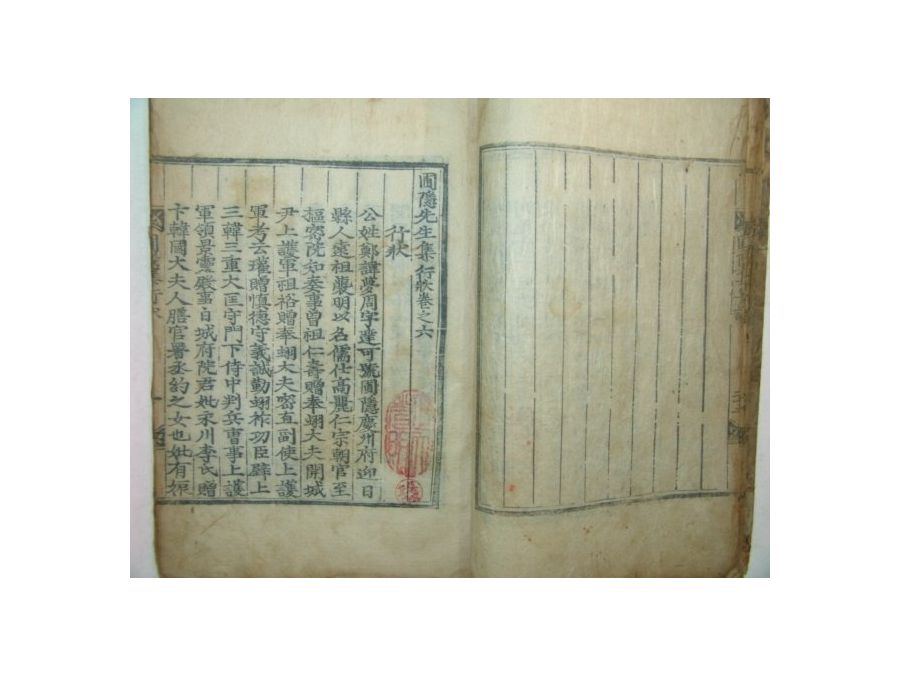 圃隱先生集行狀卷之六
行狀
公姓鄭諱夢周字達可號圃隱慶州府迎日
縣人遠祖襲明以名儒仕高麗仁宗朝官至
樞密院知奏事曾祖仁壽贈奉翊大夫開城
尹上護軍祖裕贈奉翊大夫密直副使上護
軍考云瓘贈愼德守義誠勤翊祚功臣壁上
三韓三重大匡守門下侍中判兵曹事上護
軍領景靈殿事日城府院君妣永川李氏贈
卞韓國大夫人膳官署丞約之女也妣有娠